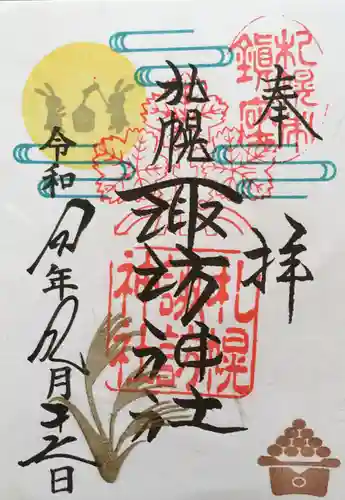 奉拝
札幌市
鎮座
札幌
諏訪神社
札幌
諏訪
神社
令和
年九月
日